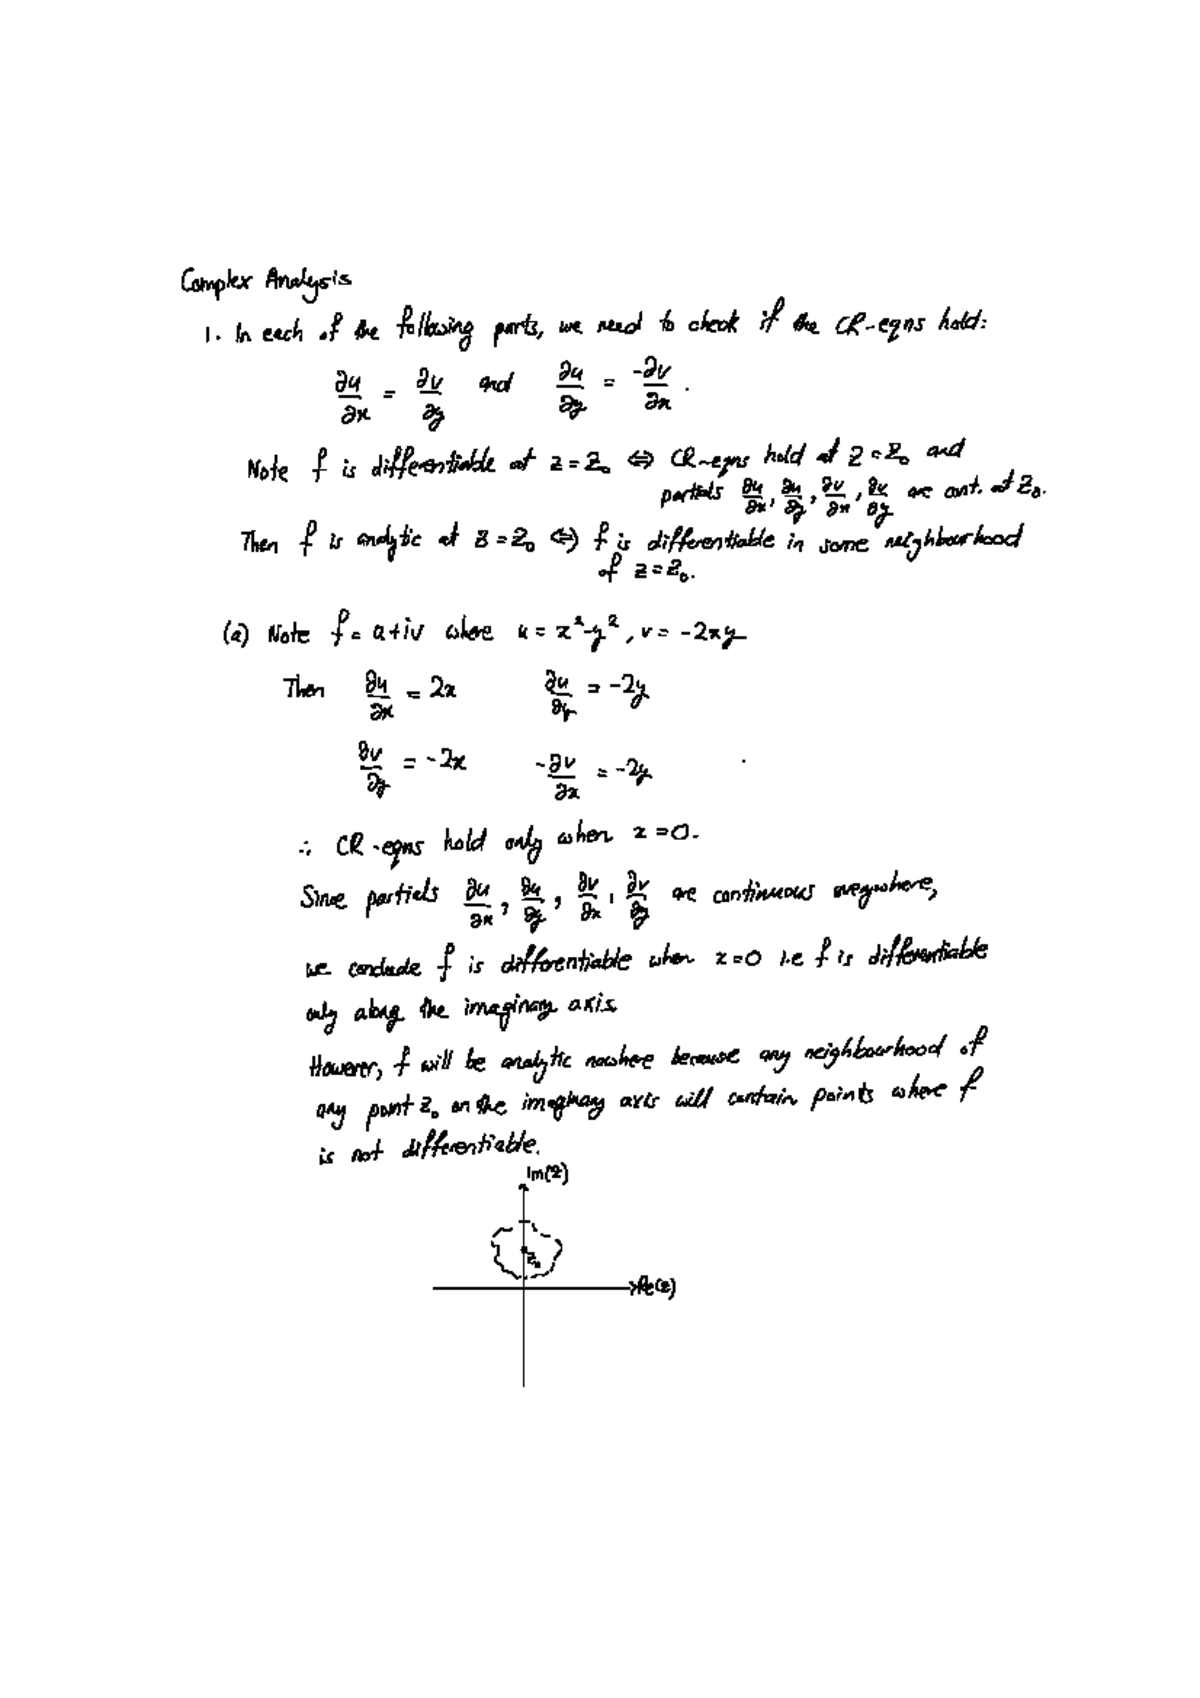 Complex Analysis
1. In each of the following parts, we need to check if the CR-eqns hold:
∂u/∂x = ∂v/∂y and ∂u/∂y = -∂v/∂x.
Note f is differentiable at z=z₀ ⇔ CR-eqns hold at z=z₀ and
partials ∂u/∂x, ∂u/∂y, ∂v/∂x, ∂v/∂y are cont. at z₀.
Then f is analytic at z=z₀ ⇔ f is differentiable in some neighbourhood
of z=z₀.
(a) Note f = u+iv where u = x²-y², v = -2xy
Then ∂u/∂x = 2x ∂u/∂y = -2y
∂v/∂y = -2x -∂v/∂x = -2y
∴ CR-eqns hold only when x=0.
Since partials ∂u/∂x, ∂u/∂y, ∂v/∂x, ∂v/∂y are continuous everywhere,
we conclude f is differentiable when x=0 i.e f is differentiable
only along the imaginary axis.
However, f will be analytic nowhere because any neighbourhood of
any point z₀ on the imaginary axis will contain points where f
is not differentiable.
Im(z)
z₀
Re(z)